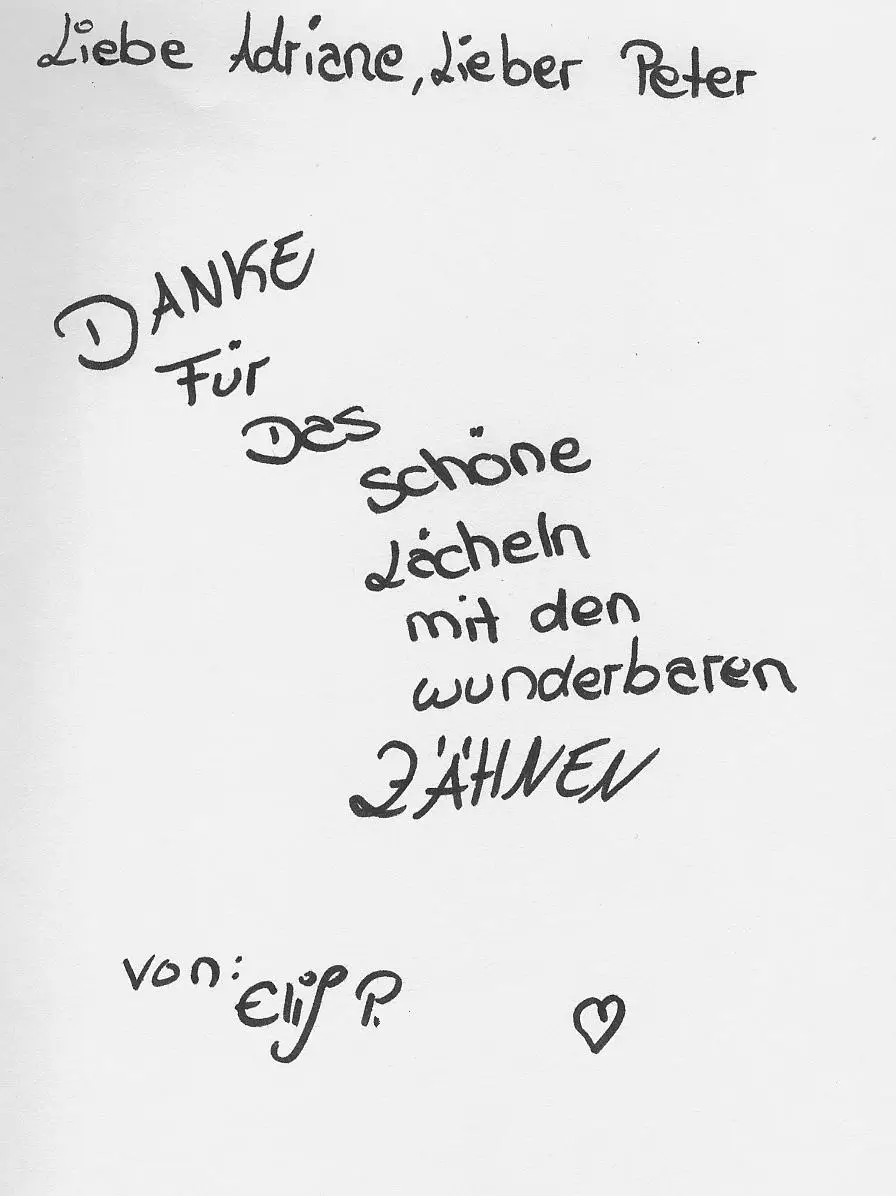 Liebe Adriane, Lieber Peter
DANKE
Für
Das
schöne
Lächeln
mit den
wunderbaren
ZÄHNEN
von:
Elif P.